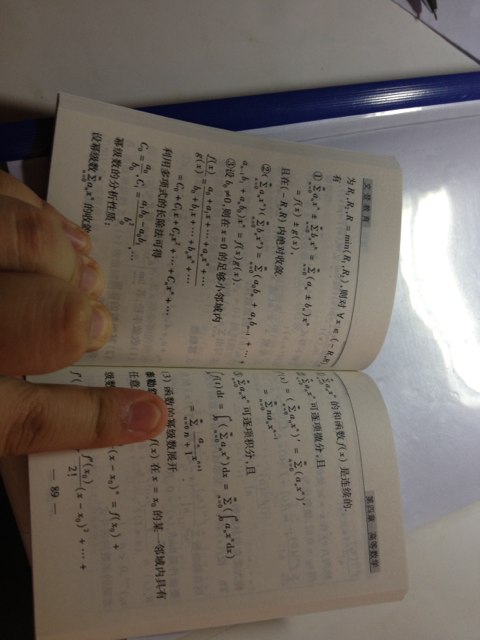 文登教育
为R₁,R₂,R = min(R₁,R₂),则对 ∀x∈(-R,R)
有
① ∑aₙxⁿ ± ∑bₙxⁿ = ∑(aₙ ± bₙ)xⁿ
= f(x) ± g(x)
且在(-R,R)内绝对收敛.
②(∑aₙxⁿ)(∑bₙxⁿ) = ∑(a₀bₙ + a₁bₙ₋₁ + … +
aₙ₋₁b₁ + aₙb₀)xⁿ = f(x)g(x).
③设 b₀≠0,则在 x = 0 的足够小邻域内
f(x)/g(x) = (a₀ + a₁x + … + aₙxⁿ + …)/(b₀ + b₁x + … + bₙxⁿ + …)
= C₀ + C₁x + C₂x² + … + Cₙxⁿ + …
利用多项式的长除法可得
C₀ = a₀/b₀, C₁ = (a₁b₀ - a₀b₁)/b₀², …
幂级数的分析性质:
设幂级数∑aₙxⁿ的收敛
第四章 高等数学
的和函数 f(x) 是连续的.
∑aₙxⁿ 可逐项微分,且
= (∑aₙxⁿ)′ = ∑(aₙxⁿ)′
= ∑naₙxⁿ⁻¹
∑aₙxⁿ 可逐项积分,且
∫f(t)dt = ∫(∑aₙxⁿ)dx = ∑(∫aₙxⁿdx)
= ∑ aₙ/(n+1) xⁿ⁺¹
(3) 函数的幂级数展开
泰勒 f(x) 在 x = x₀ 的某一邻域内具有
任意
级数 (x - x₀)ⁿ = f(x₀) +
f′( f″(x₀)/2! (x - x₀)² + … +
— 89 —